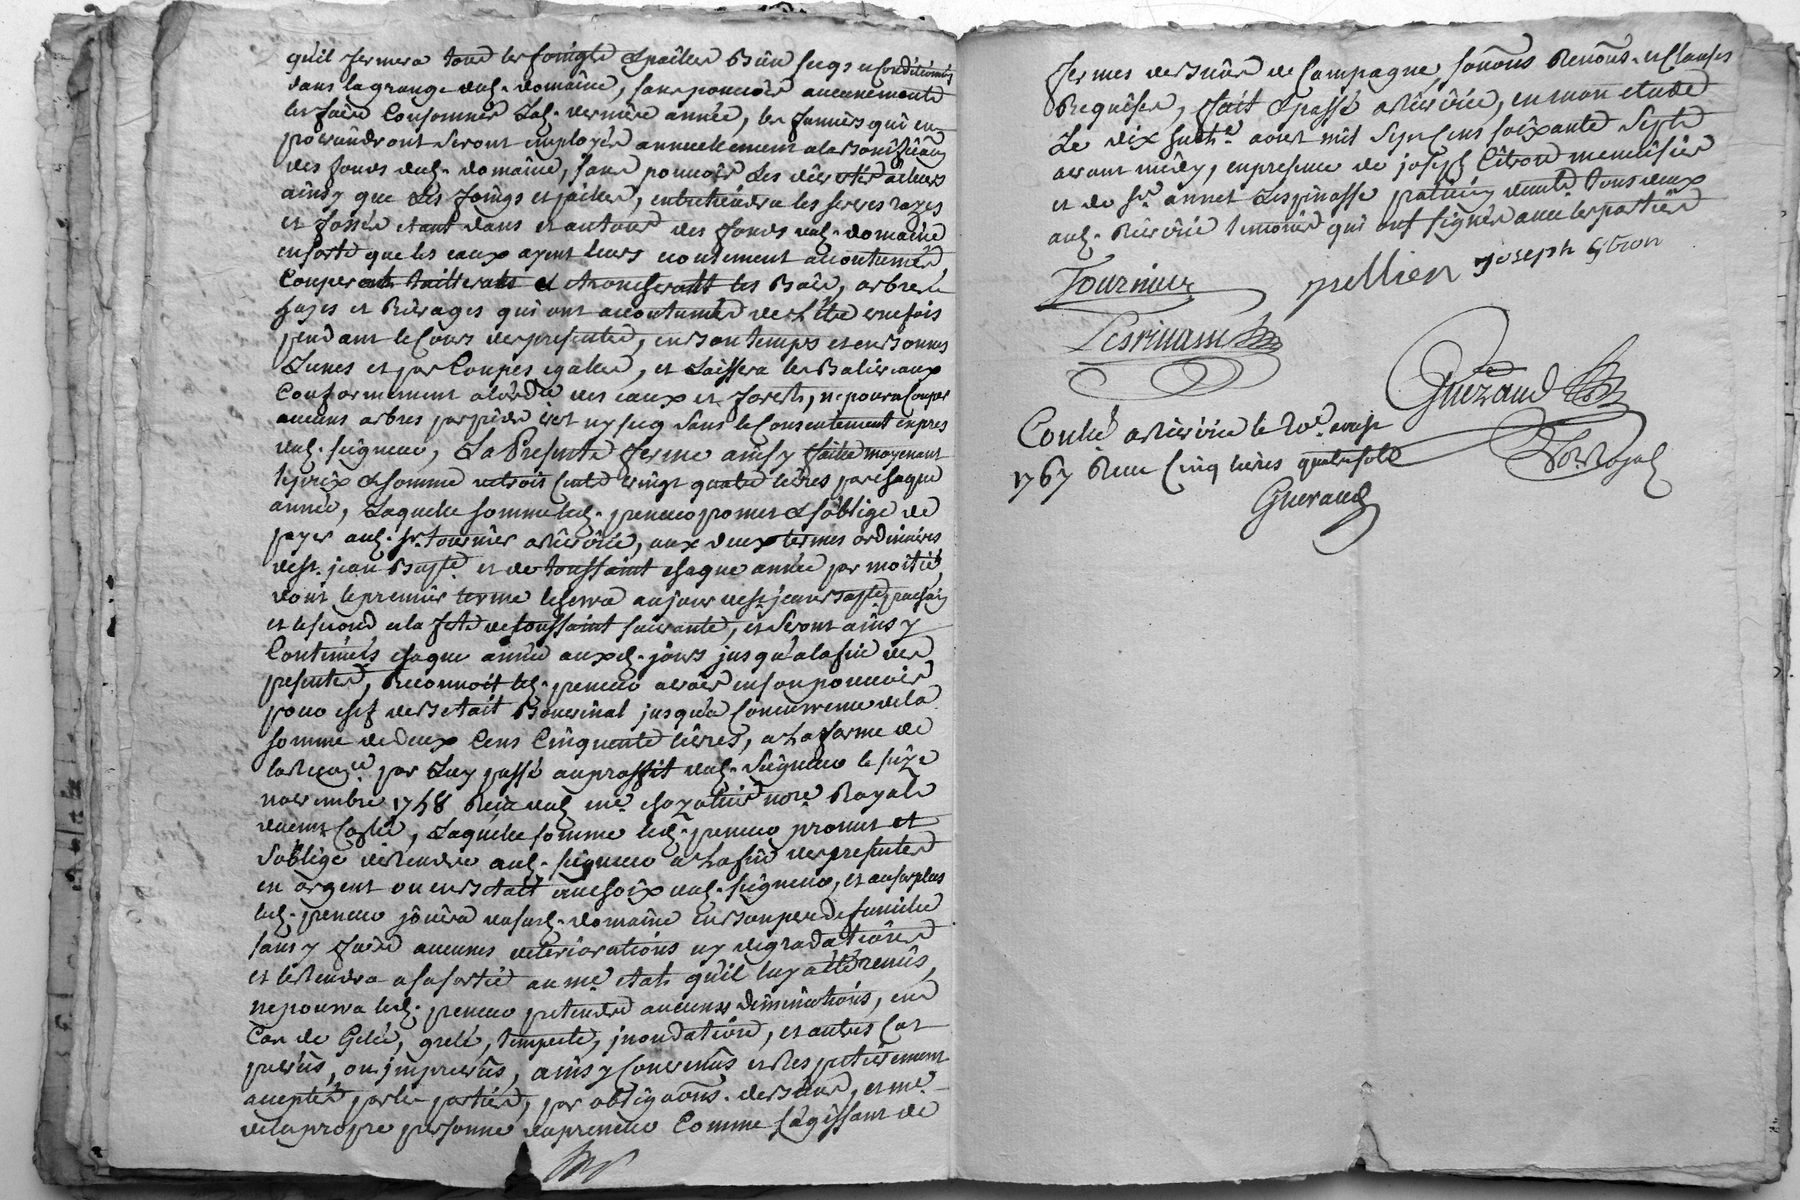 qu'il fermera tous les foings & pailles bien secqs et conditionnés
dans la grange dud. domaine, sans pouvoir aucunement
les faire consommer lad. derniere année, les fumiers qui en
proviendront seront employés annuellement a la bonification
des fonds dud. domaine, sans pouvoir les divertir ailleurs
ainsy que les foings et pailles, entretiendra les serves razes
et fossés etant dans et autour des fonds dud. domaine
en sorte que les eaux ayent leurs ecoulement accoutumés,
les bois, arbres,
hayes et rivages qui ont accoutumés de l'etre une fois
pendant le cours des presentes, en bon temps et en bonnes
lunes et par coupes egales, et laissera les baliveaux
conformement a l'ord.ce des eaux et forests, ne poura couper
aucuns arbres par pied vert ny secq sans le consentement expres
dud. seigneur, La presente ferme ainsy faitte moyenant
le prix & somme de trois cents vingt quatre livres par chaque
année, laquelle somme led. preneur promet & s'oblige de
payer aud. sr. tournier, aux deux termes ordinaires
de st. jean Bapte. et de toussaint chaque année par moitié,
dont le premier terme echerra au jour de st. jean bapte prochain
et le second a la fete de toussaint suivante, et seront ainsy
continués chaque année auxd. jours jusqu'a la fin des
presentes, Reconnoit led. preneur avoir en son pouvoir
pour chef de betail bouvinal jusqu'a concurrence de la
somme de deux cens cinquante livres, a la forme de
par luy passé au proffit dud. seigneur le seize
novembre 1758 Recue dud. me. nore. Royal
, Laquelle somme led. preneur promet et
s'oblige de rendre aud. seigneur a la fin des presentes
en argent ou en betail au choix dud. seigneur, et au surplus
led. preneur jouira dususd. domaine en bon pere de famille
sans y faire aucunes deteriorations ny degradations
et le rendra a sa sortie au me. etat qu'il luy a eté remis,
ne pourra led. preneur pretendre aucunes diminutions, en
cas de Gelée, grele, tempeste, jnondation, et autres cas
prevûs, ou jmprevûs, ainsy convenûs et Respectivement
acceptés par les parties, par obligaons. de biens, et me.
de la propre personne du preneur comme s'agissant de
fermes de biens de Campagne, soûmons Renons. et Clauses
Requises, fait & passé, en mon etude
Le dix huite. aout mil sept cens soixante sept
avant midy, en presence de joseph Citron menuisier
et de sr. annet Lespinasse praticien tous deux
temoins qui ont signés avec les parties
Tournier pellier Joseph Citron
Lespinasse
Guéraud
Not. Royal
Conlé le 20e. aoust
1767 Reçu Cinq livres quatre sols
Gueraud